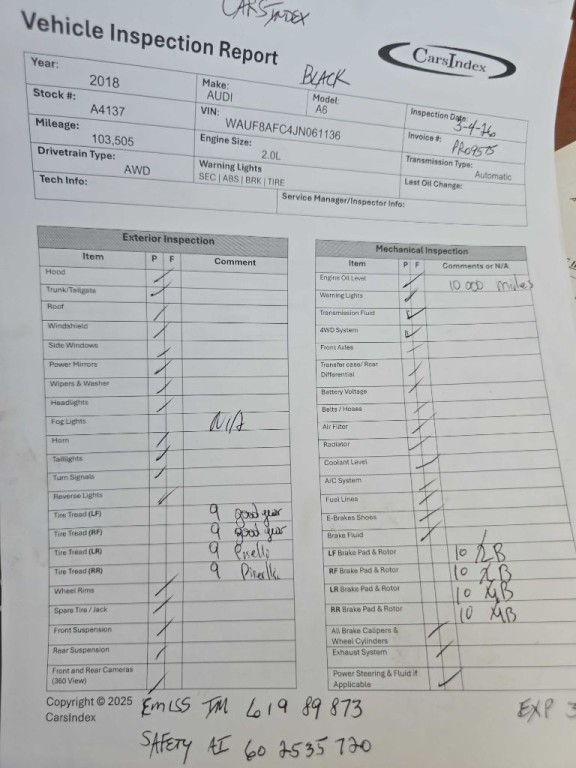 CARSINDEX
Vehicle Inspection Report
CarsIndex
BLACK
Year: 2018
Make: AUDI
Model: A6
Inspection Date: 3-4-26
Stock #: A4137
VIN: WAUF8AFC4JN061136
Invoice #:
Mileage: 103,505
Engine Size: 2.0L
Transmission Type: Automatic
Drivetrain Type: AWD
Warning Lights
SEC | ABS | BRK | TIRE
Last Oil Change:
Tech Info:
Service Manager/Inspector Info:
Exterior Inspection
Item P F Comment
Hood
Trunk/Tailgate
Roof
Windshield
Side Windows
Power Mirrors
Wipers & Washer
Headlights
Fog Lights N/A
Horn
Taillights
Turn Signals
Reverse Lights
Tire Tread (LF) 9 good year
Tire Tread (RF) 9 good year
Tire Tread (LR) 9 Pirelli
Tire Tread (RR) 9 Pirelli
Wheel Rims
Spare Tire / Jack
Front Suspension
Rear Suspension
Front and Rear Cameras
(360 View)
Mechanical Inspection
Item P F Comments or N/A
Engine Oil Level 10 000 miles
Warning Lights
Transmission Fluid
4WD System
Front Axles
Transfer case/ Rear
Differential
Battery Voltage
Belts / Hoses
Air Filter
Radiator
Coolant Level
A/C System
Fuel Lines
E-Brakes Shoes
Brake Fluid
LF Brake Pad & Rotor 10
RF Brake Pad & Rotor 10
LR Brake Pad & Rotor 10
RR Brake Pad & Rotor 10
All Brake Calipers &
Wheel Cylinders
Exhaust System
Power Steering & Fluid if
Applicable
Copyright © 2025
CarsIndex
EMISS TM 619 89 873
EXP 3
SAFETY AI 60 2535 720